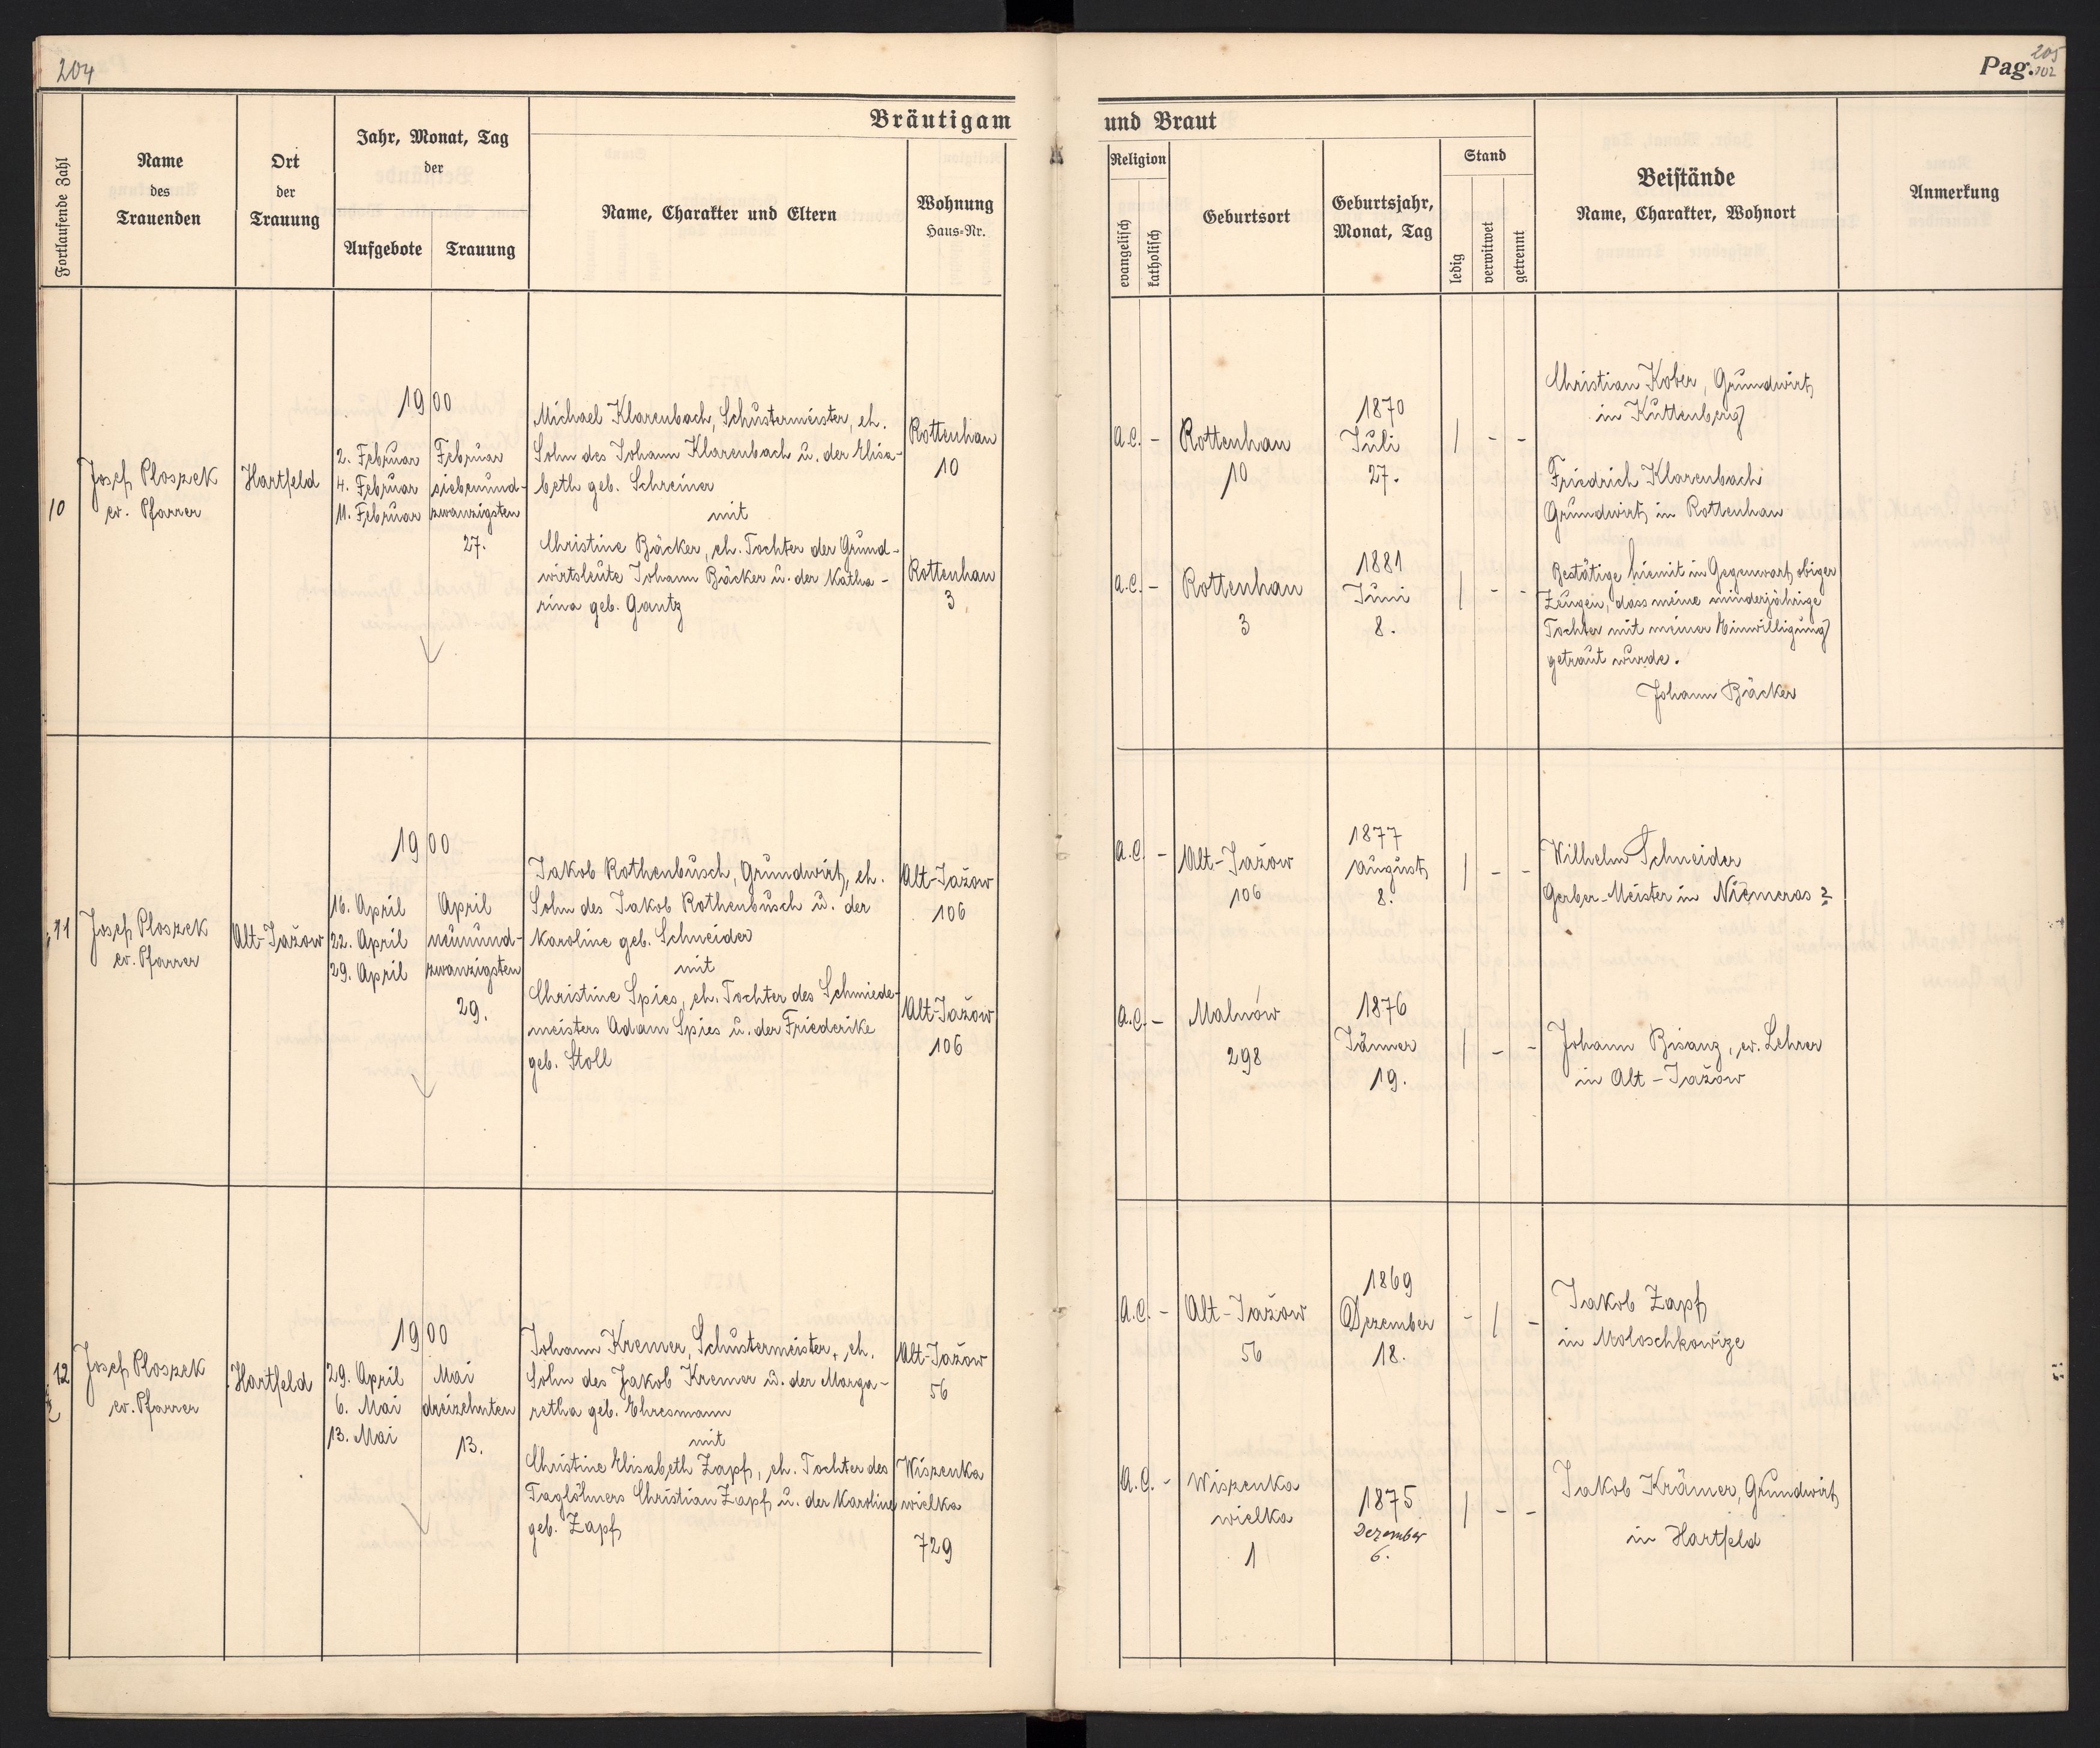 204
Pag. 205
102
Bräutigam und Braut
Fortlaufende Zahl
Name
des
Trauenden
Ort
der
Trauung
Jahr, Monat, Tag
der
Aufgebote
Trauung
Name, Charakter und Eltern
Wohnung
Haus-Nr.
Religion
evangelisch
katholisch
Geburtsort
Geburtsjahr,
Monat, Tag
Stand
ledig
verwitwet
getrennt
Beistände
Name, Charakter, Wohnort
Anmerkung
10
Josef Ploszek
ev. Pfarrer
Hartfeld
1900
2. Februar
4. Februar
11. Februar
Februar
siebenund-
zwanzigsten
27.
Michael Klarenbach, Schustermeister, eh.
Sohn des Johann Klarenbach u. der Elisa-
beth geb. Schreiner
mit
Christine Bäcker, eh. Tochter der Grund-
wirtsleute Johann Bäcker u. der Katha-
rina geb. Gantz
Rottenhan
10
Rottenhan
3
A.C. -
Rottenhan
10
1870
Juli
27.
/ - -
A.C. -
Rottenhan
3
1881
Juni
8.
/ - -
Christian Kober, Grundwirt
in Kuttenberg
Friedrich Klarenbach
Grundwirt in Rottenhan
Bestätige hiemit in Gegenwart obiger
Zeugen, dass meine minderjährige
Tochter mit meiner Einwilligung
getraut wurde.
Johann Bäcker
11
Josef Ploszek
ev. Pfarrer
Alt-Jažow
1900
16. April
22. April
29. April
April
neunund-
zwanzigsten
29.
Jakob Rothenbusch, Grundwirt, eh.
Sohn des Jakob Rothenbusch u. der
Karoline geb. Schneider
mit
Christine Spies, eh. Tochter des Schmiede-
meisters Adam Spies u. der Friederike
geb. Stoll
Alt-Jažow
106
Alt-Jažow
106
A.C. -
Alt-Jažow
106
1877
August
8.
/ - -
A.C. -
Malnów
298
1876
Jänner
19.
/ - -
Wilhelm Schneider
Gerber-Meister in Niemeras?
Johann Bisanz, ev. Lehrer
in Alt-Jažow
12
Josef Ploszek
ev. Pfarrer
Hartfeld
1900
29. April
6. Mai
13. Mai
Mai
dreizehnten
13.
Johann Kremer, Schustermeister, eh.
Sohn des Jakob Kremer u. der Marga-
retha geb. Ehresmann
mit
Christine Elisabeth Zapf, eh. Tochter des
Taglöhners Christian Zapf u. der Karoline
geb. Zapf
Alt-Jažow
56
Wiszenka
wielka
729
A.C. -
Alt-Jažow
56
1869
Dezember
18.
- / -
A.C. -
Wiszenka
wielka
1
1875
Dezember
6.
/ - -
Jakob Zapf
in Moloschkowize
Jakob Krämer, Grundwirt
in Hartfeld